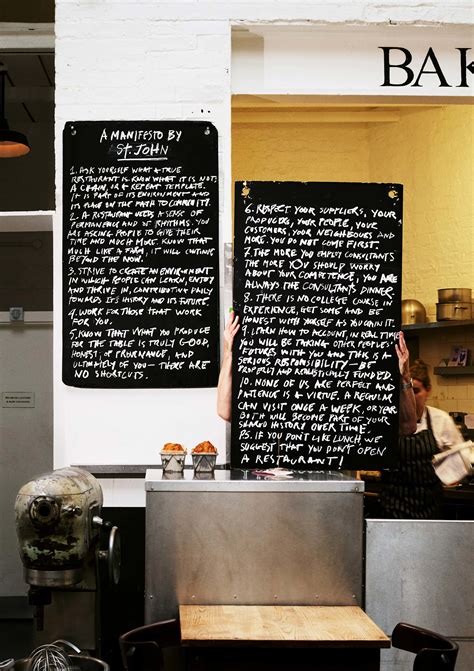 BAK
A MANIFESTO BY
ST. JOHN
1. ASK YOURSELF WHAT A TRUE
RESTAURANT IS. KNOW WHAT IT IS NOT,
A CHAIN, OR A REPEAT TEMPLATE.
IT IS PART OF ITS ENVIRONMENT AND
ITS PLACE ON THE PATH TO
2. A RESTAURANT NEEDS A SENSE OF
PERMANENCE AND IT'S RHYTHMS. YOU
ARE ASKING PEOPLE TO GIVE THEIR
TIME AND MUCH MORE. KNOW THAT
MUCH LIKE A FARM, IT WILL CONTINUE
BEYOND THE NOW.
3. STRIVE TO CREATE AN ENVIRONMENT
IN WHICH PEOPLE CAN LEARN, ENJOY
AND THRIVE IN, CONTRIBUTING FULLY
TOWARDS IT'S HISTORY AND ITS FUTURE.
4. WORK FOR THOSE THAT WORK
FOR YOU.
5. KNOW THAT WHAT YOU PRODUCE
FOR THE TABLE IS TRULY GOOD,
HONEST, OF PROVENANCE, AND
ULTIMATELY OF YOU – THERE ARE
NO SHORTCUTS.
6. RESPECT YOUR SUPPLIERS, YOUR
PRODUCERS, YOUR PEOPLE, YOUR
CUSTOMERS, YOUR NEIGHBOURS AND
MORE. YOU DO NOT COME FIRST.
7. THE MORE YOU EMPLOY CONSULTANTS
THE MORE YOU SHOULD WORRY
ABOUT YOUR COMPETENCE, YOU ARE
ALWAYS THE CONSULTANTS DINNER.
8. THERE IS NO COLLEGE COURSE IN
EXPERIENCE, GET SOME AND BE
HONEST WITH YOURSELF AS YOU GAIN IT.
9. LEARN HOW TO ACCOUNT, IN REAL TIME
YOU WILL BE TAKING OTHER PEOPLES'
FUTURES WITH YOU AND THIS IS A
SERIOUS RESPONSIBILITY – BE
PROPERLY AND REALISTICALLY FUNDED.
10. NONE OF US ARE PERFECT AND
PATIENCE IS A VIRTUE. A REGULAR
CAN VISIT ONCE A WEEK, OR YEAR
BOTH WILL BECOME PART OF YOUR
SHARED HISTORY OVER TIME.
P.S. IF YOU DON'T LIKE LUNCH, WE
SUGGEST THAT YOU DON'T OPEN
A RESTAURANT!